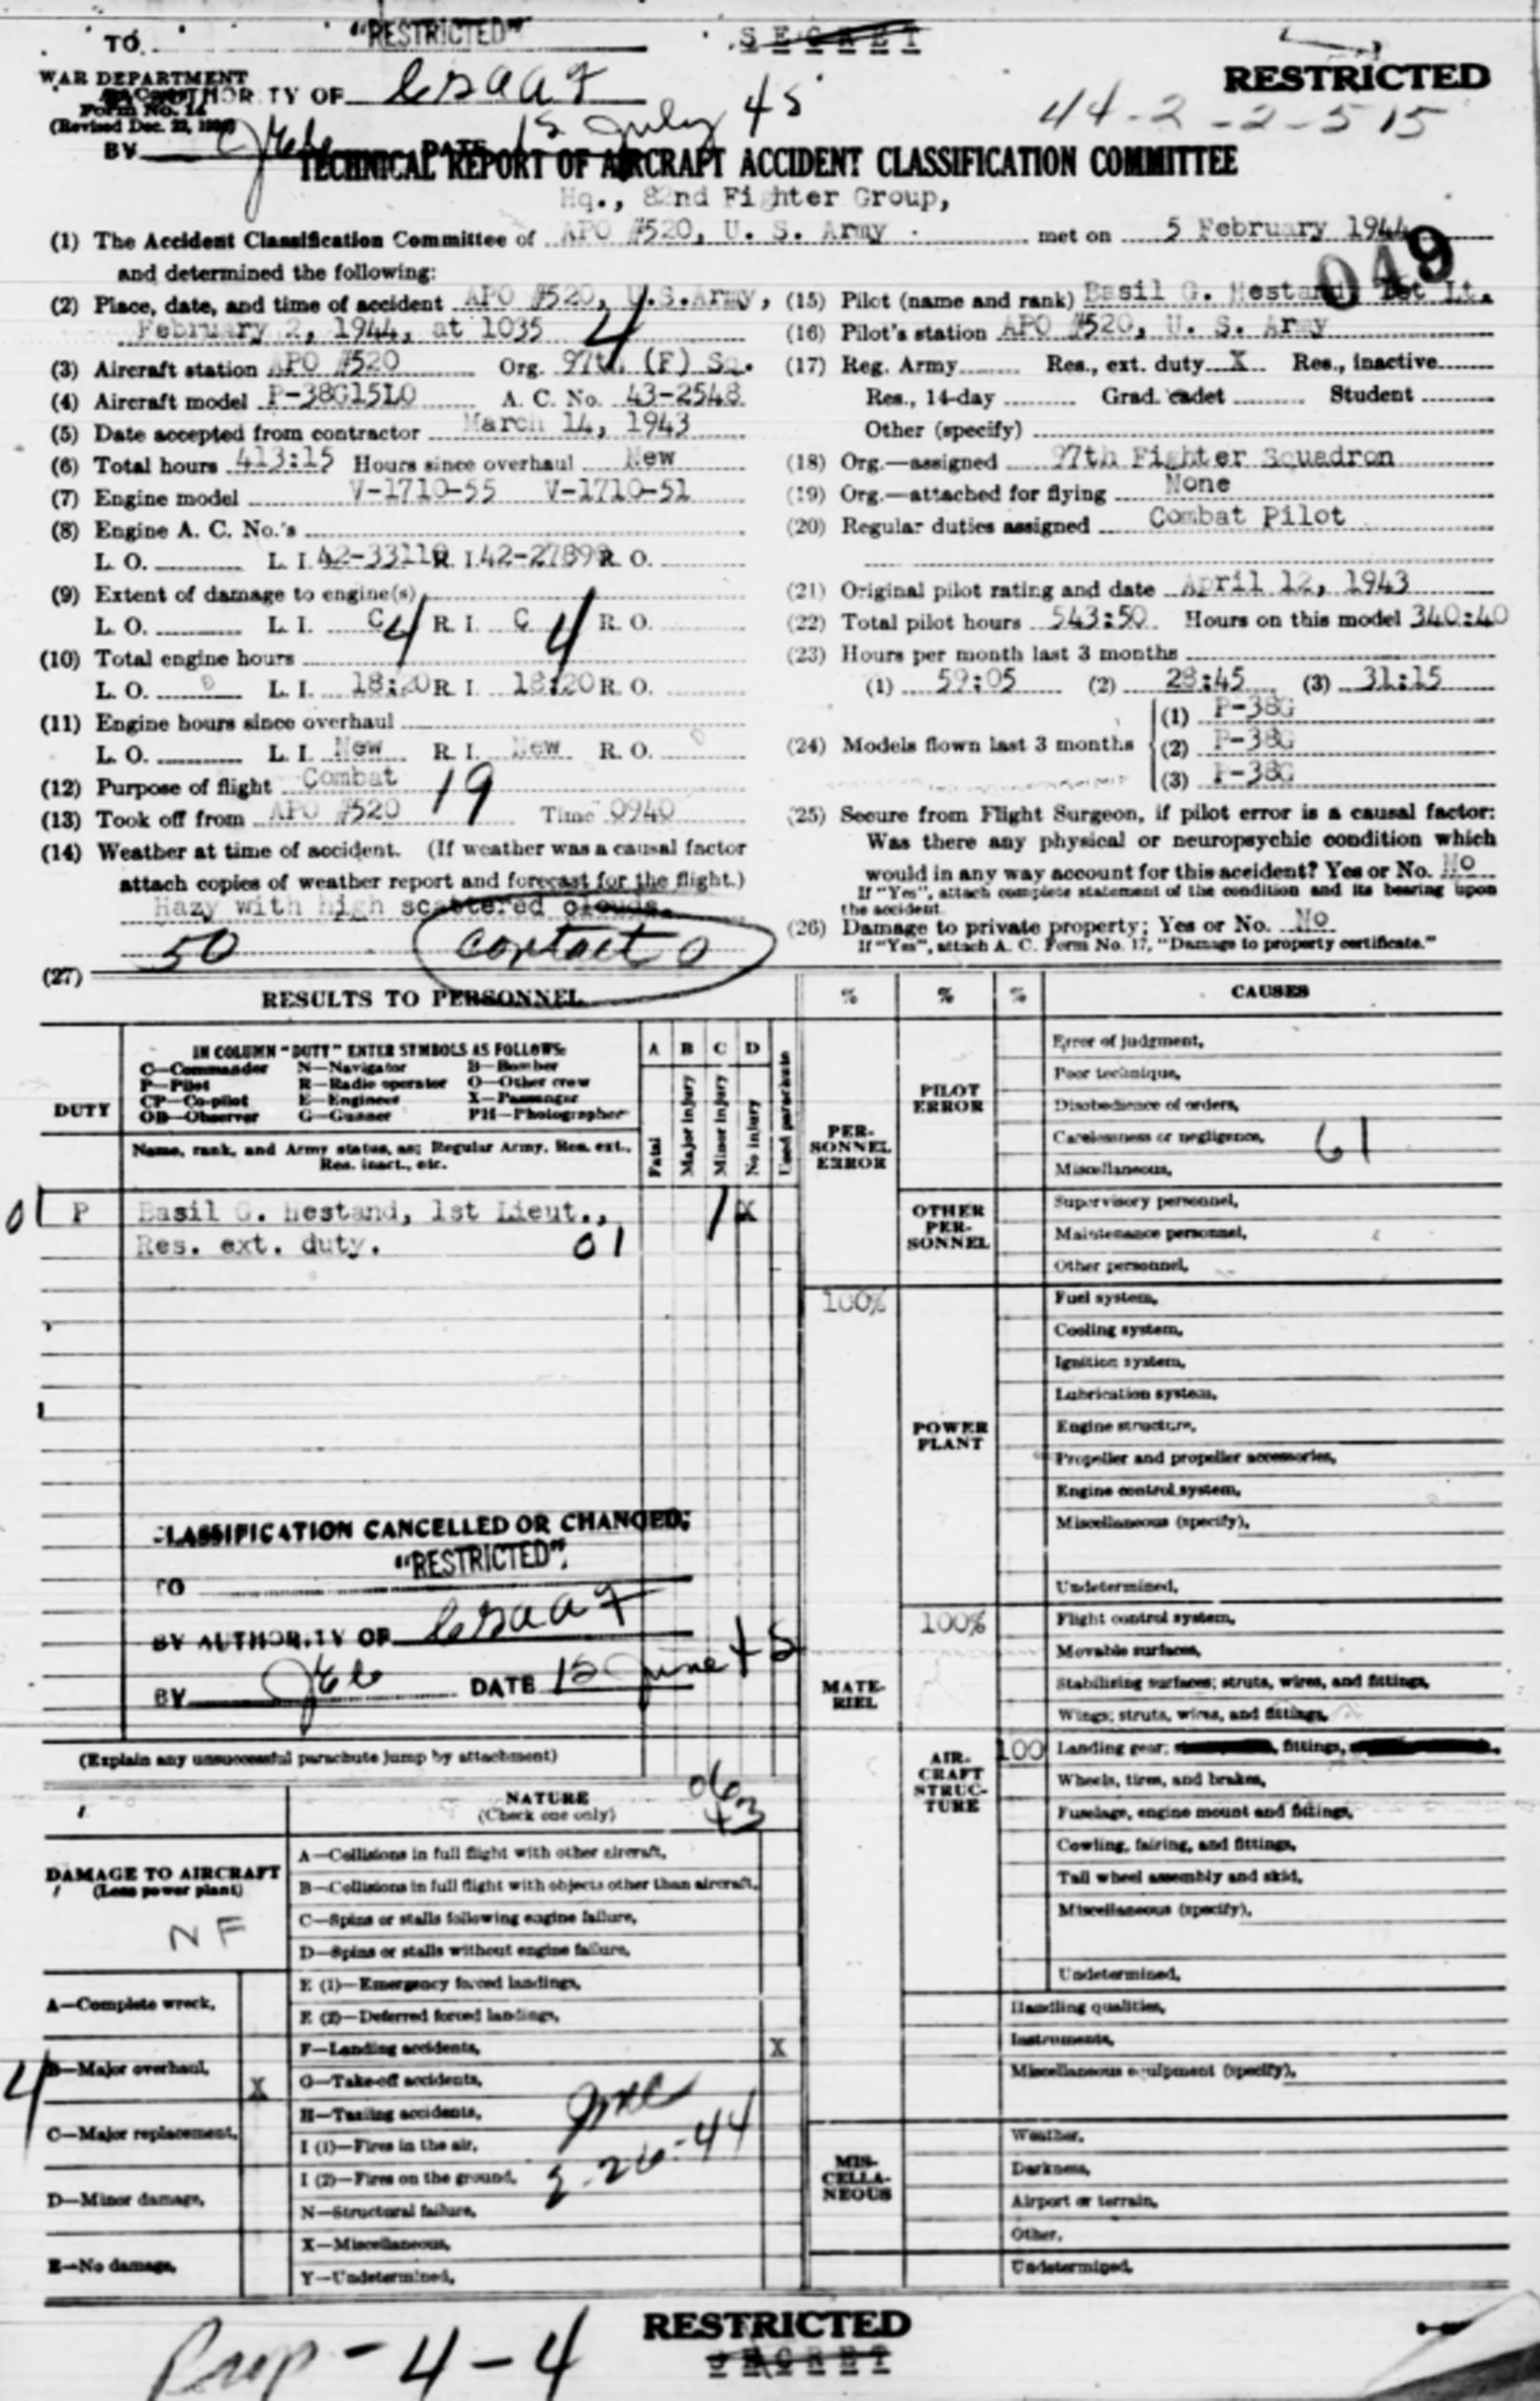 "RESTRICTED"
TO
SECRET
WAR DEPARTMENT
Form No. 14
(Revised Dec. 22, 1936)
RESTRICTED
BY AUTHORITY OF
44-2-2-515
BY DATE 15 July 45
TECHNICAL REPORT OF AIRCRAFT ACCIDENT CLASSIFICATION COMMITTEE
Hq., 82nd Fighter Group,
(1) The Accident Classification Committee of APO #520, U. S. Army met on 5 February 1944
and determined the following:
049
(2) Place, date, and time of accident APO #520, U.S.Army,
February 2, 1944, at 1035 4
(3) Aircraft station APO #520 Org. 97th (F) Sq.
(4) Aircraft model P-38G15LO A. C. No. 43-2548
(5) Date accepted from contractor March 14, 1943
(6) Total hours 413:15 Hours since overhaul New
(7) Engine model V-1710-55 V-1710-51
(8) Engine A. C. No.'s
L. O. L. I. R. I. R. O.
(9) Extent of damage to engine(s)
L. O. L. I. C 4 R. I. C 4 R. O.
(10) Total engine hours
L. O. L. I. 18:20 R. I. 18:20 R. O.
(11) Engine hours since overhaul
L. O. L. I. New R. I. New R. O.
(12) Purpose of flight Combat 19
(13) Took off from APO #520 Time 0940
(14) Weather at time of accident. (If weather was a causal factor
attach copies of weather report and forecast for the flight.)
Hazy with high scattered clouds.
50 contact 0
(15) Pilot (name and rank) Basil G. Hestand 1st Lt.
(16) Pilot's station APO #520, U. S. Army
(17) Reg. Army Res., ext. duty X Res., inactive
Res., 14-day Grad. cadet Student
Other (specify)
(18) Org.—assigned 97th Fighter Squadron
(19) Org.—attached for flying None
(20) Regular duties assigned Combat Pilot
(21) Original pilot rating and date April 12, 1943
(22) Total pilot hours 543:50 Hours on this model 340:40
(23) Hours per month last 3 months
(1) 59:05 (2) 28:45 (3) 31:15
(24) Models flown last 3 months
(1) P-38G
(2) P-38G
(3) P-38G
(25) Secure from Flight Surgeon, if pilot error is a causal factor:
Was there any physical or neuropsychic condition which
would in any way account for this accident? Yes or No. No
If "Yes", attach complete statement of the condition and its bearing upon
the accident.
(26) Damage to private property; Yes or No. No
If "Yes", attach A. C. Form No. 17, "Damage to property certificate."
(27)
RESULTS TO PERSONNEL
DUTY
IN COLUMN "DUTY" ENTER SYMBOLS AS FOLLOWS:
C—Commander N—Navigator B—Bomber
P—Pilot R—Radio operator O—Other crew
CP—Co-pilot E—Engineer X—Passenger
OB—Observer G—Gunner PH—Photographer
Name, rank, and Army status, as; Regular Army, Res. ext.,
Res. inact., etc.
A B C D
Fatal
Major injury
Minor injury
No injury
Used parachute
01 P Basil G. Hestand, 1st Lieut., X
Res. ext. duty. 01
CLASSIFICATION CANCELLED OR CHANGED:
"RESTRICTED"
TO
BY AUTHORITY OF
BY DATE 15 June 45
(Explain any unsuccessful parachute jump by attachment)
NATURE
(Check one only)
DAMAGE TO AIRCRAFT
(Less power plant)
NF
A—Complete wreck,
4 B—Major overhaul, X
C—Major replacement,
D—Minor damage,
E—No damage,
A—Collisions in full flight with other aircraft,
B—Collisions in full flight with objects other than aircraft,
C—Spins or stalls following engine failure,
D—Spins or stalls without engine failure,
E (1)—Emergency forced landings,
E (2)—Deferred forced landings,
F—Landing accidents, X
G—Take-off accidents,
H—Taxiing accidents,
I (1)—Fires in the air,
I (2)—Fires on the ground,
N—Structural failure,
X—Miscellaneous,
Y—Undetermined,
% % % CAUSES
PERSONNEL ERROR
PILOT ERROR
Error of judgment,
Poor technique,
Disobedience of orders,
Carelessness or negligence, 61
Miscellaneous,
OTHER PERSONNEL
Supervisory personnel,
Maintenance personnel,
Other personnel,
100%
MATERIEL
POWER PLANT
Fuel system,
Cooling system,
Ignition system,
Lubrication system,
Engine structure,
Propeller and propeller accessories,
Engine control system,
Miscellaneous (specify),
Undetermined,
100%
AIRCRAFT STRUCTURE
Flight control system,
Movable surfaces,
Stabilizing surfaces; struts, wires, and fittings,
Wings; struts, wires, and fittings,
100 Landing gear; fittings,
Wheels, tires, and brakes,
Fuselage, engine mount and fittings,
Cowling, fairing, and fittings,
Tail wheel assembly and skid,
Miscellaneous (specify),
Undetermined,
Handling qualities,
Instruments,
Miscellaneous equipment (specify),
MISCELLANEOUS
Weather,
Darkness,
Airport or terrain,
Other,
Undetermined,
RESTRICTED
SECRET
-4-4